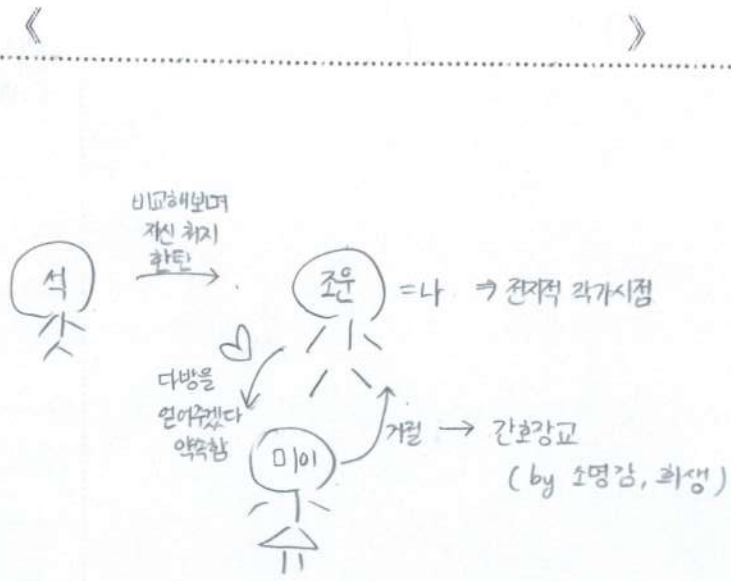 《 》
비교해보며
자신 처지
한탄
석
조운 = 나 ⇒ 전지적 작가시점
다방을
얻어주겠다
약속함
미이
거절 → 간호장교
(by 소명감, 희생)